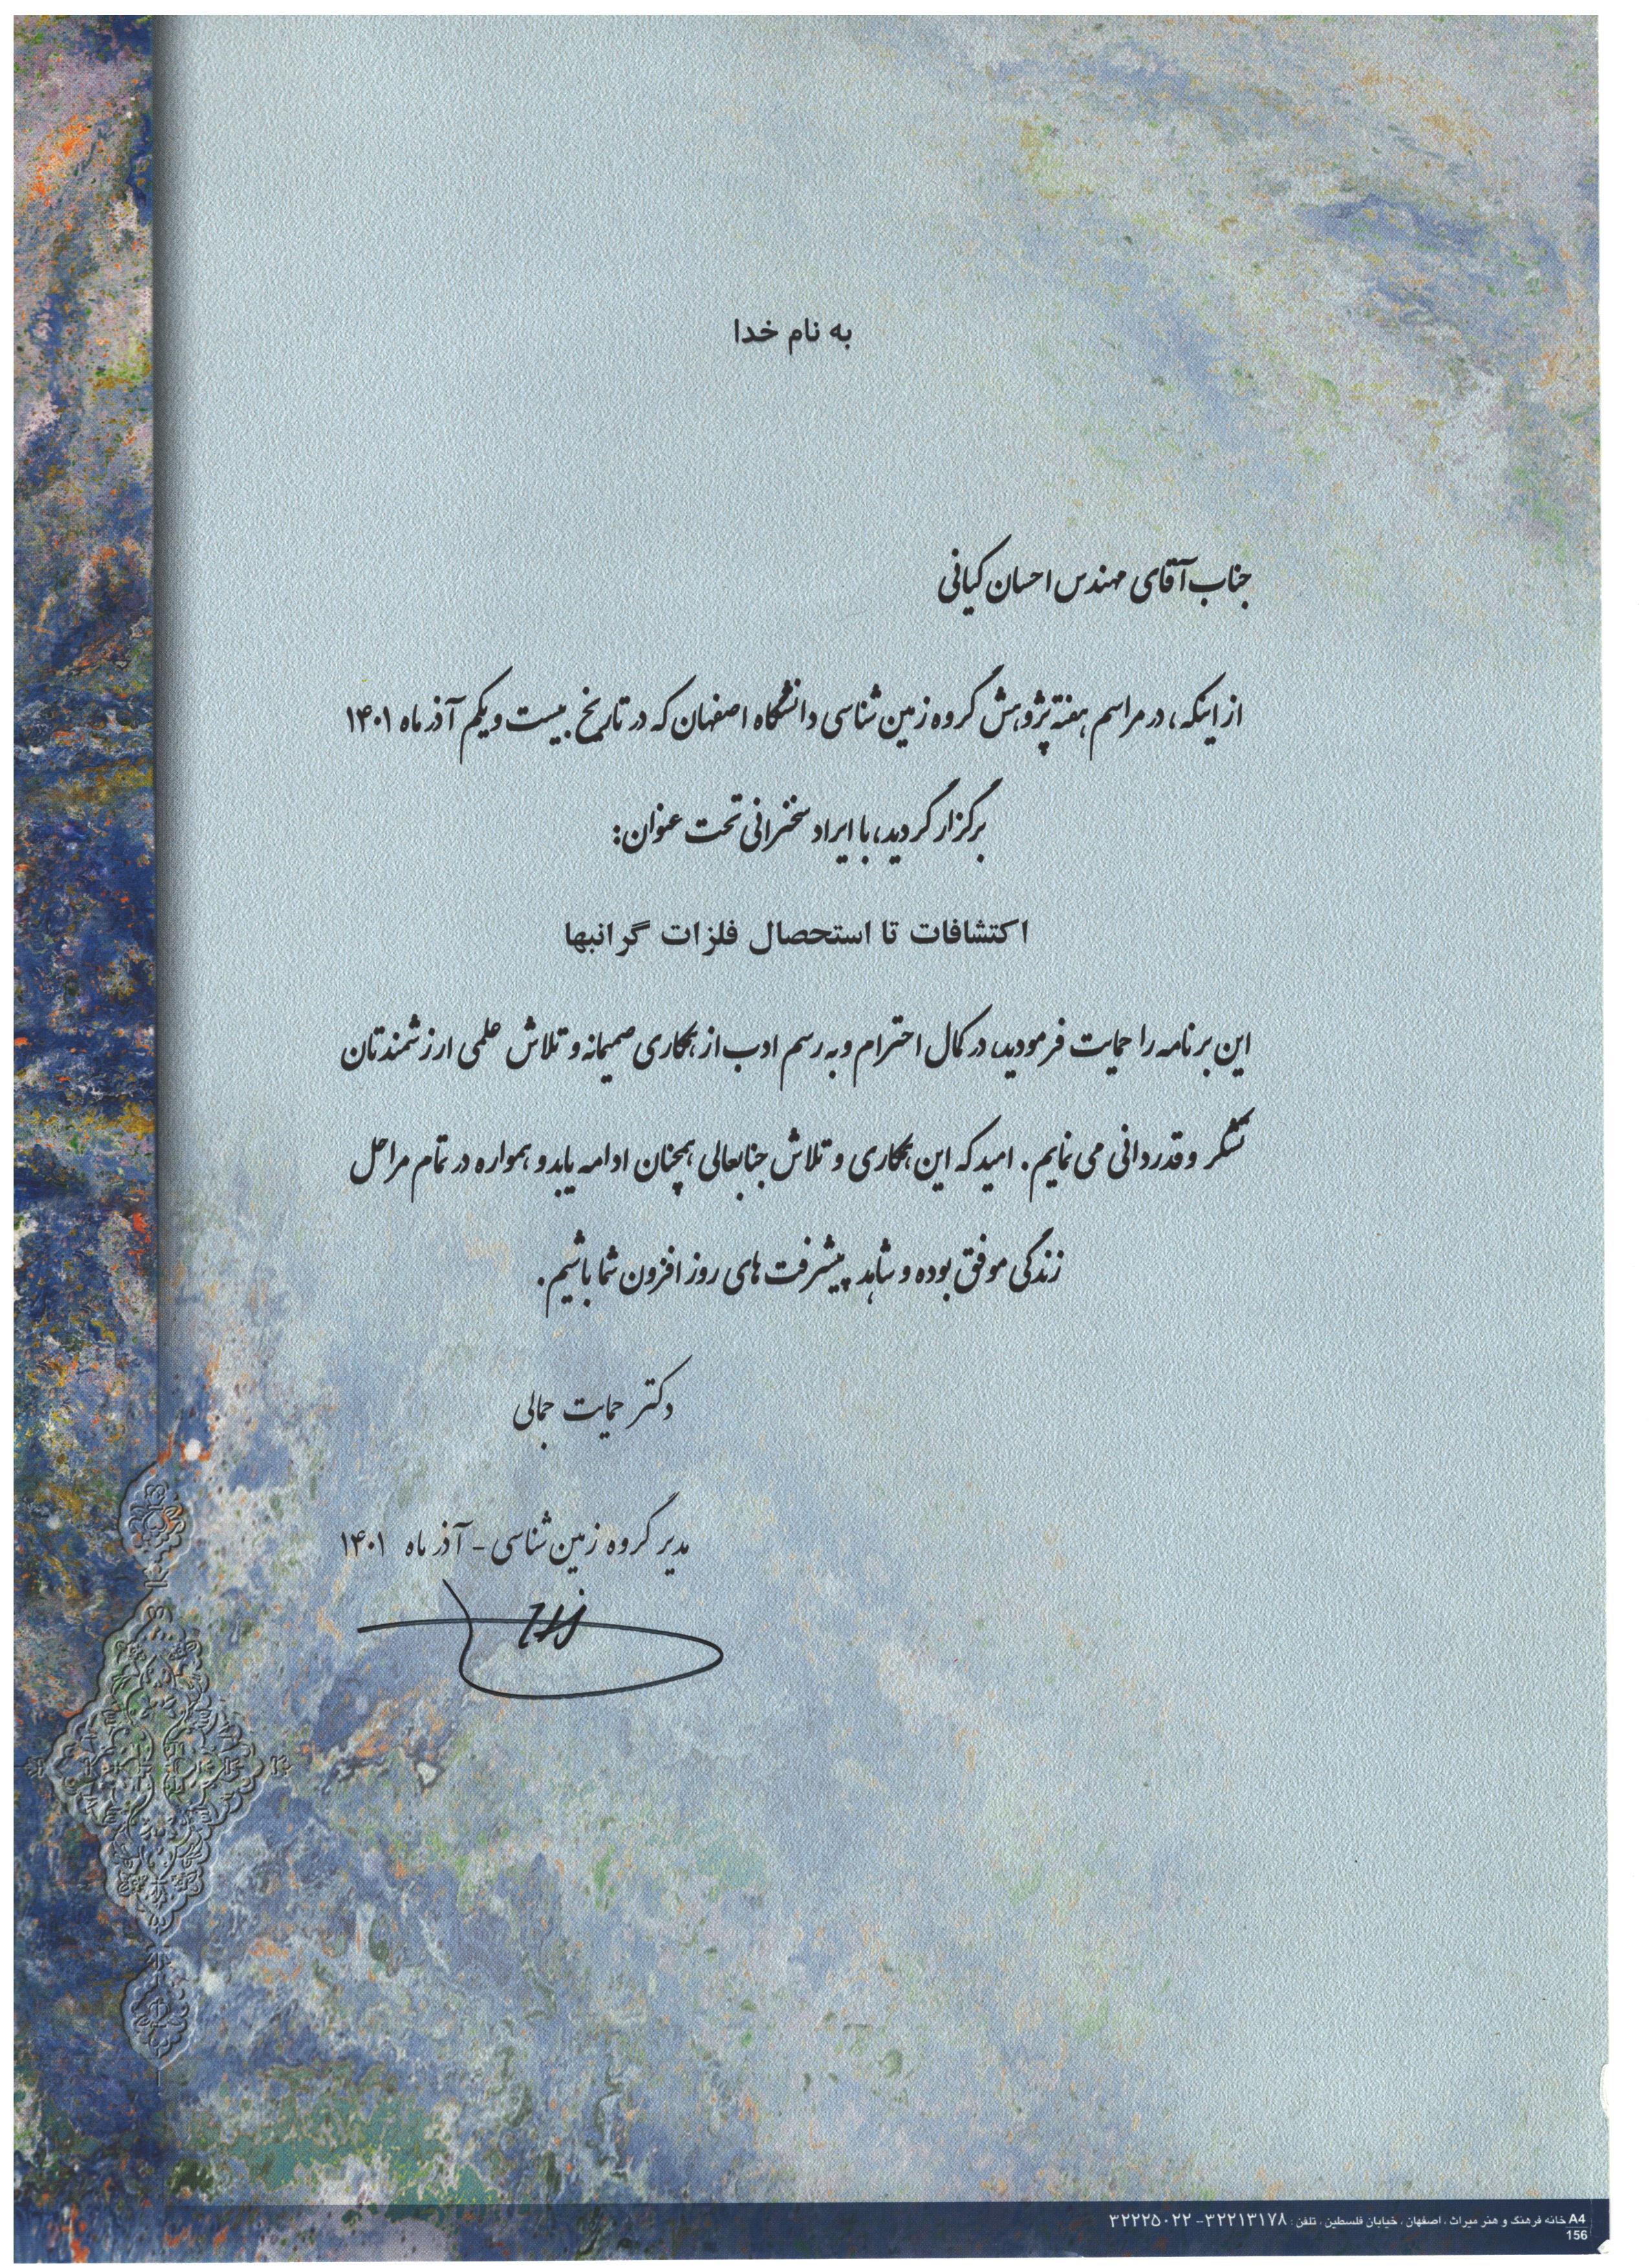 به نام خدا
جناب آقای مهندس احسان کیانی
از اینکه، در مراسم هفته پژوهش گروه زمین شناسی دانشگاه اصفهان که در تاریخ بیست و یکم آذر ماه ۱۴۰۱
برگزار گردید، با ایراد سخنرانی تحت عنوان:
اکتشافات تا استحصال فلزات گرانبها
این برنامه را حمایت فرمودید، در کمال احترام و به رسم ادب از همکاری صمیمانه و تلاش علمی ارزشمندتان
تشکر و قدردانی می نمایم. امید که این همکاری و تلاش جنابعالی همچنان ادامه یابد و همواره در تمام مراحل
زندگی موفق بوده و شاهد پیشرفت های روز افزون شما باشیم.
دکتر حمایت جمالی
مدیر گروه زمین شناسی - آذر ماه ۱۴۰۱
A4 خانه فرهنگ و هنر میراث ، اصفهان ، خیابان فلسطین ، تلفن : ۳۲۲۱۳۱۷۸ - ۳۲۲۲۵۰۲۲
156